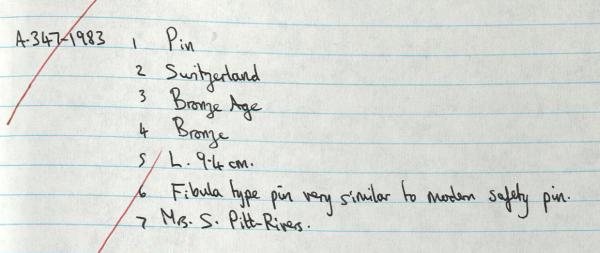 A.347-1983 1 Pin
2 Switzerland
3 Bronze Age
4 Bronze
5 L. 9.4 cm.
6 Fibula type pin very similar to modern safety pin.
7 Mrs. S. Pitt-Rivers.